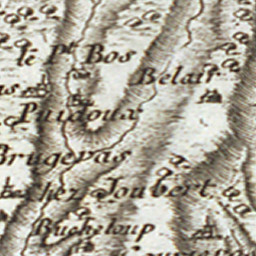 le P.t Bos
Belair
Puidoux
Brugeras
chez Joubert
Bucheloup